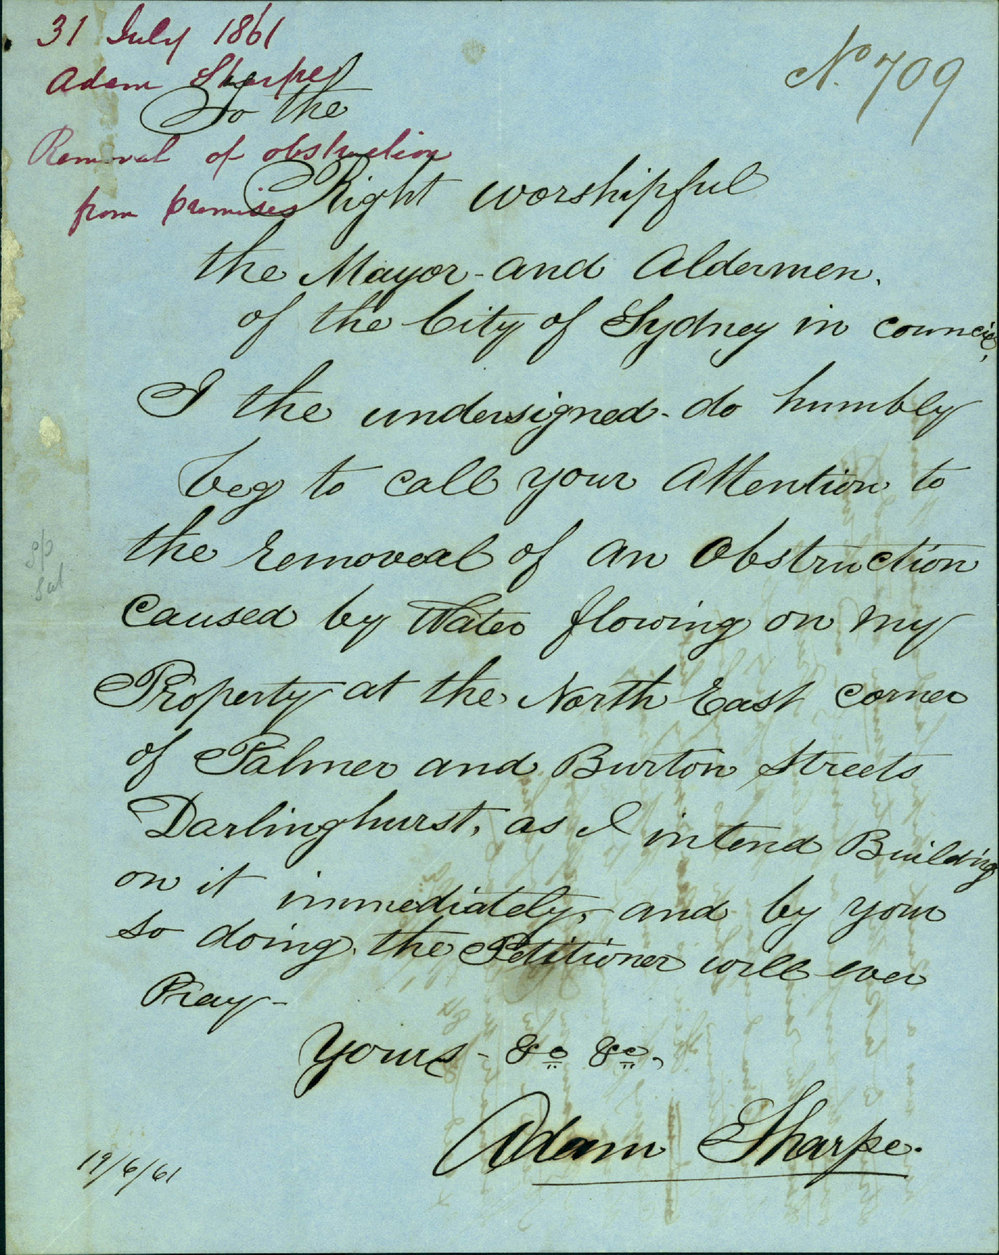 31 July 1861
Adam Sharpe
Removal of obstruction
from premises
No 709
To the
Right worshipful
the Mayor and Aldermen.
of the City of Sydney in council,
I the undersigned do humbly
beg to call your Attention to
the removeal of an Obstruction
caused by Water flowing on my
Property at the North East corner
of Palmer and Burton Streets
Darlinghurst, as I intend Building
on it immediately, and by your
so doing the Petitioner will ever
Pray-
Yours - &c &c,
Adam Sharpe.
19/6/61